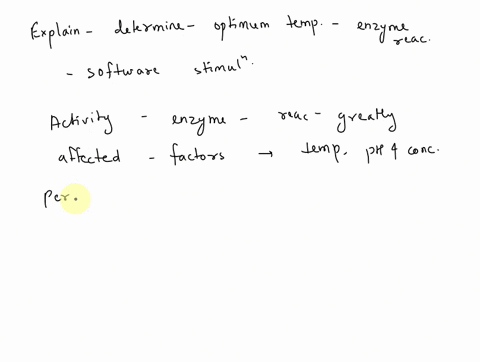 Explain - determine - optimum temp. - enzyme reac.
- software stimulⁿ.
Activity - enzyme - reac - greatly
affected - factors → temp. pH & conc.
per.